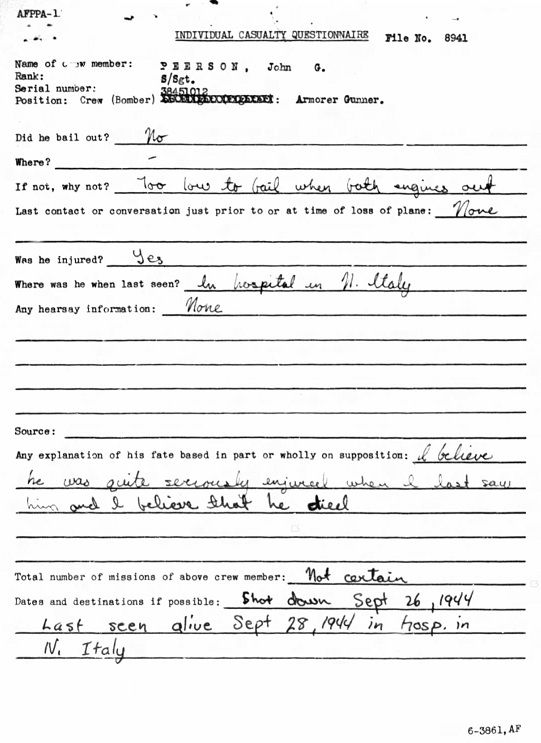 AFPPA-1
INDIVIDUAL CASUALTY QUESTIONNAIRE File No. 8941
Name of crew member: PEERSON, John G.
Rank: S/Sgt.
Serial number: 38451012
Position: Crew (Bomber) : Armorer Gunner.
Did he bail out? No
Where? –
If not, why not? Too low to bail when both engines out
Last contact or conversation just prior to or at time of loss of plane: None
Was he injured? Yes
Where was he when last seen? In hospital in N. Italy
Any hearsay information: None
Source:
Any explanation of his fate based in part or wholly on supposition: I believe
he was quite seriously enjured when I last saw
him and I believe that he died
Total number of missions of above crew member: Not certain
Dates and destinations if possible: Shot down Sept 26, 1944
Last seen alive Sept 28, 1944 in hosp. in
N. Italy
6-3861, AF